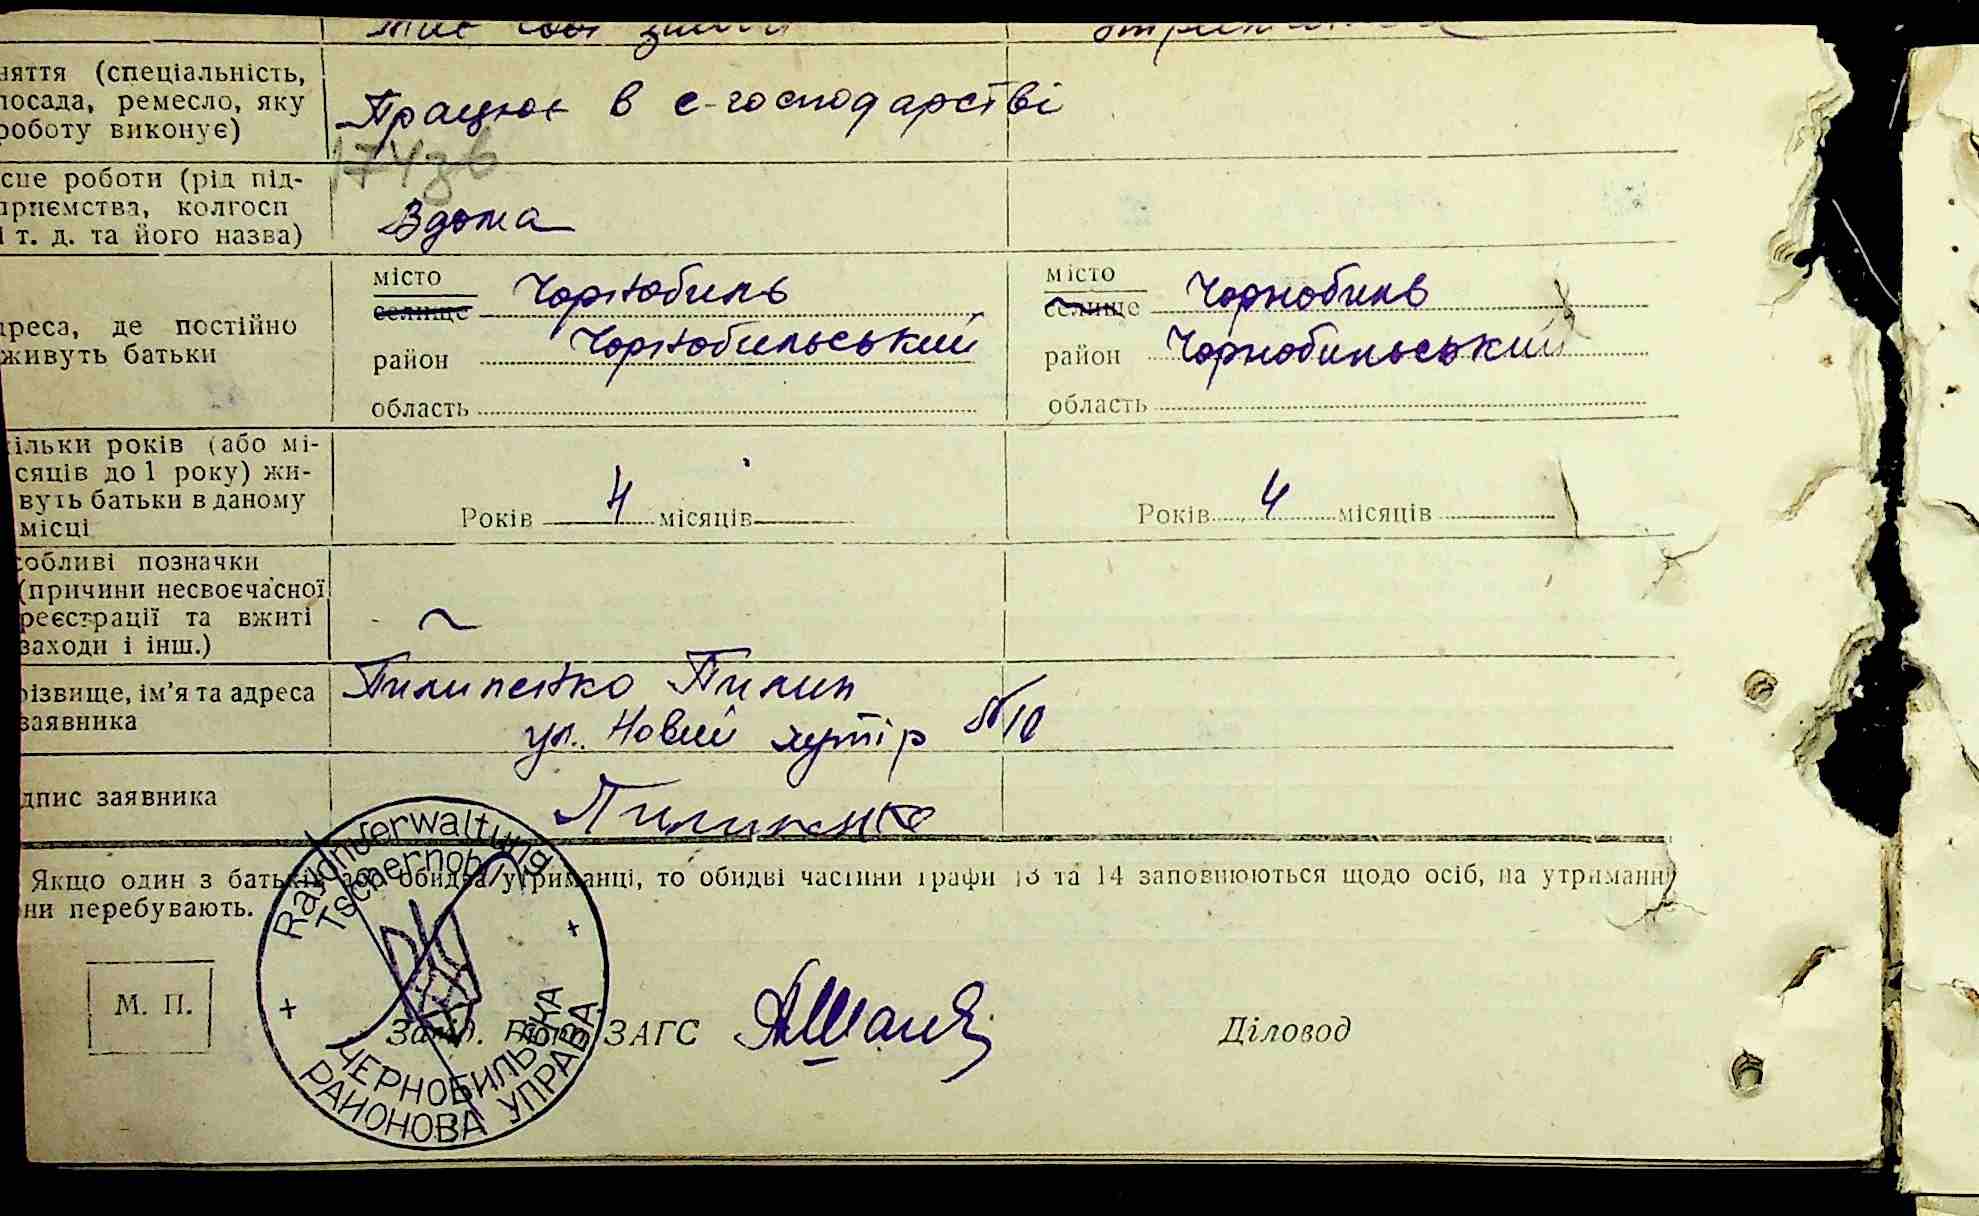 няття (спеціальність,
посада, ремесло, яку
роботу виконує)
Працює в с-господарстві
174зв
сце роботи (рід під-
приємства, колгосп
і т. д. та його назва)
Вдома
дреса, де постійно
живуть батьки
місто
селище Чорнобиль
район Чорнобильський
область
місто
селище Чорнобиль
район Чорнобильський
область
кільки років (або мі-
сяців до 1 року) жи-
вуть батьки в даному
місці
Років 4 місяців
Років 4 місяців
собливі позначки
(причини несвоєчасної
реєстрації та вжиті
заходи і інш.)
різвище, ім'я та адреса
заявника
Пилипенко Пилип
ул. Новий хутір №10
дпис заявника
Пилипенко
Якщо один з батьків або обидва утриманці, то обидві частини графи 13 та 14 заповнюються щодо осіб, на утриманні
ни перебувають.
М. П.
Rajonverwaltung
Tschernob
ЧЕРНОБИЛЬСЬКА
РАЙОНОВА УПРАВА
Зав. Бюро ЗАГС
Діловод